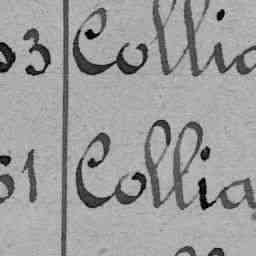 3 Collia
51 Collia